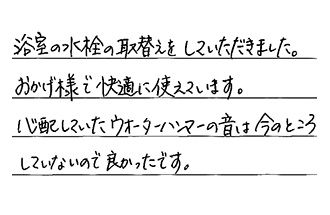 浴室の水栓の取替えをしていただきました。
おかげ様で快適に使えています。
心配していたウォーターハンマーの音は今のところ
していないので良かったです。